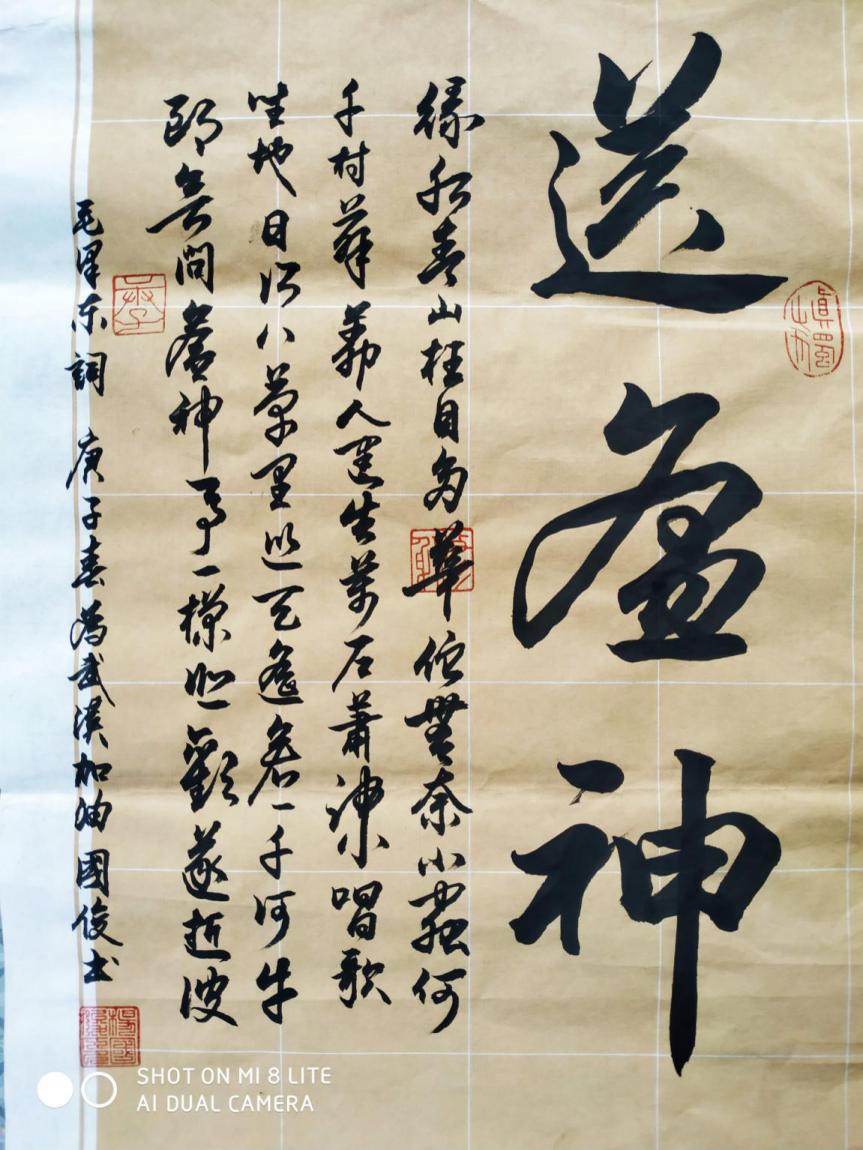 送瘟神
緑水青山枉自多華佗無奈小蟲何
千村薜荔人遺矢萬户蕭疎鬼唱歌
坐地日行八萬里巡天遥看一千河牛
郎欲問瘟神事一樣悲歡逐逝波
毛澤东詞 庚子春為武漢加油國俊书
SHOT ON MI 8 LITE
AI DUAL CAMERA